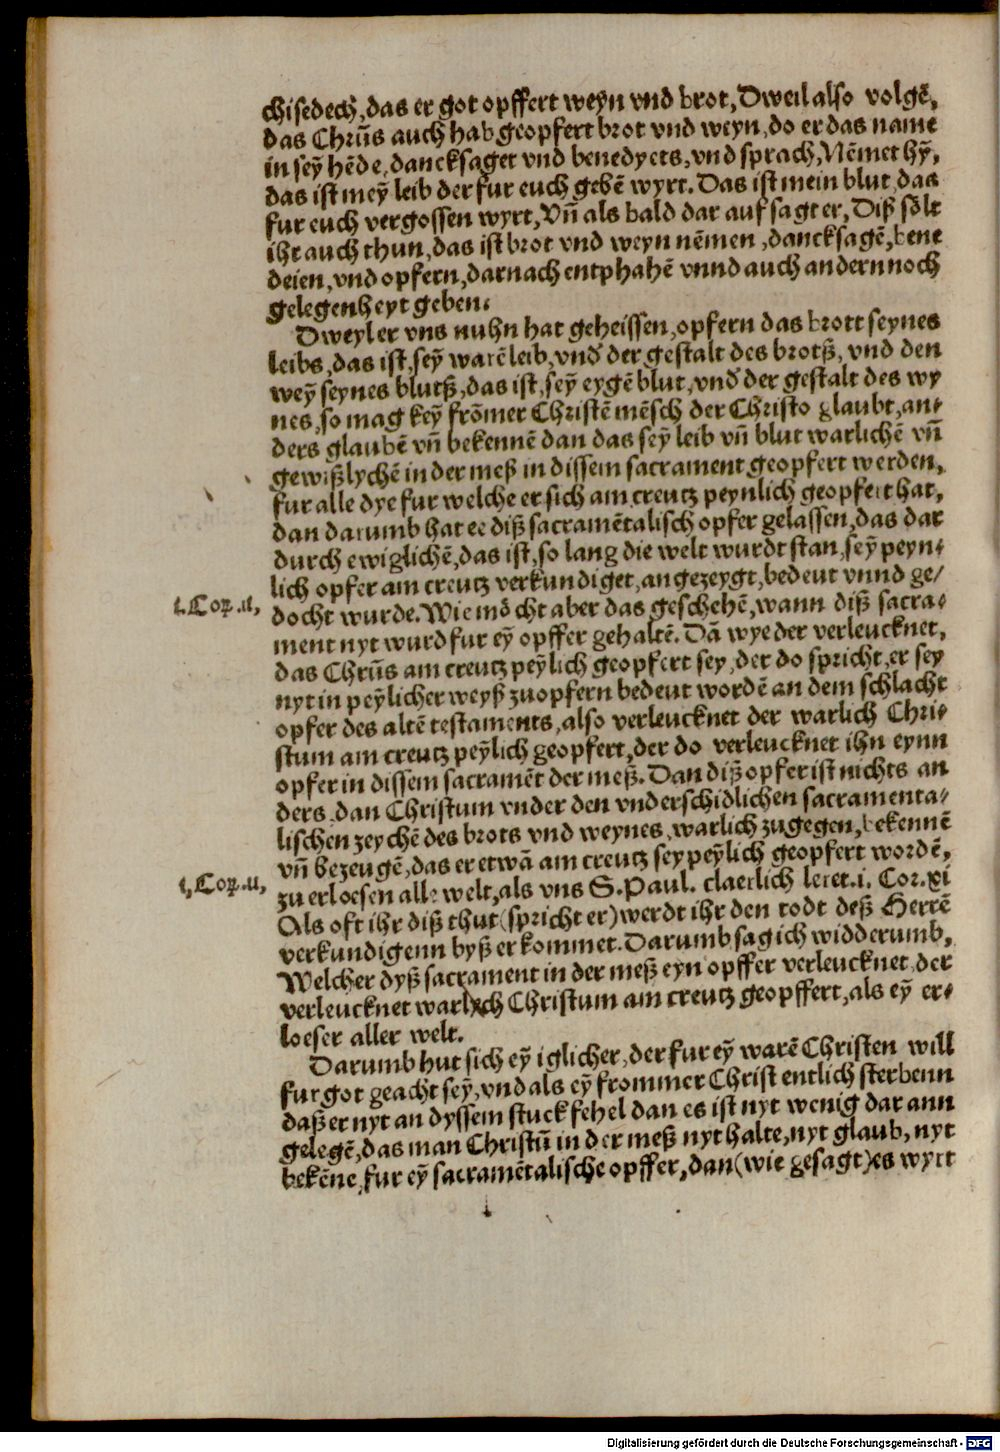 chisedech, das er got opffert weyn vnd brot, Dweil also volgē,
das Chrūs auch hab geopfert brot vnd weyn, do er das name
in sey̅ hēde, dancksaget vnd benedyets, vnd sprach, Nēmet hy̅,
das ist mey̅ leib der fur euch gebē wyrt. Das ist mein blut, das
fur euch vergossen wyrt, Vn̄ als bald dar auf sagt er, Diß sōlt
ihr auch thun, das ist brot vnd weyn nēmen, dancksagē, bene
deien, vnd opfern, darnach entphahē vnnd auch andern noch
gelegenheyt geben.
Dweyl er vns nuhn hat geheissen, opfern das brott seynes
leibs, das ist, sey̅ warē leib, vnd̉ der gestalt des brotß, vnd den
wey̅ seynes blutß, das ist, sey̅ eygē blut, vnd̉ der gestalt des wy
nes, so mag key̅ frōmer Christē mēsch der Christo glaubt, an⸗
ders glaubē vn̄ bekennē dan das sey̅ leib vn̄ blut warlichē vn̄
gewißlychē in der meß in dissem sacrament geopfert werden,
fur alle dye fur welche er sich am creutz peynlich geopfert hat,
dan darumb hat er diß sacramētalisch opfer gelassen, das dar
durch ewiglichē, das ist, so lang die welt wurdt stan, sey̅ peyn⸗
lich opfer am creutz verkundiget, angezeygt, bedeut vnnd ge/
1. Cor. 11,
docht wurde. Wie mȯcht aber das geschehē, wann diß sacra⸗
ment nyt wurd fur ey̅ opffer gehaltē. Dā wye der verleucknet,
das Chrūs am creutz pey̅lich geopfert sey, der do spricht, er sey
nyt in pey̅licher weyß zuopfern bedeut wordē an dem schlacht
opfer des altē testaments, also verleucknet der warlich Chri⸗
stum am creutz pey̅lich geopfert, der do verleucknet ihn eynn
opfer in dissem sacramēt der meß. Dan diß opfer ist nichts an
ders, dan Christum vnder den vnderschidlichen sacramenta⸗
lischen zeychē des brots vnd weynes, warlich zugegen, bekennē
vn̄ bezeugē, das er etwā am creutz sey pey̅lich geopfert wordē,
1, Cor. 11,
zu erloesen alle welt, als vns S. Paul. claerlich leret. i. Cor. xi
Als oft ihr diß thut (spricht er) werdt ihr den todt deß Herrē
verkundigenn byß er kommet. Darumb sag ich widderumb,
Welcher dyß sacrament in der meß eyn opffer verleucknet, der
verleucknet warlich Christum am creutz geopffert, als ey̅ er⸗
loeser aller welt.
Darumb hut sich ey̅ iglicher, der fur ey̅ warē Christen will
fur got geacht sey̅, vnd als ey̅ frommer Christ entlich sterbenn
daß er nyt an dyssem stuck fehel dan es ist nyt wenig dar ann
gelegē, das man Christū in der meß nyt halte, nyt glaub, nyt
bekēne, fur ey̅ sacramētalische opffer, dan (wie gesagt) es wyrt
Digitalisierung gefördert durch die Deutsche Forschungsgemeinschaft - DFG